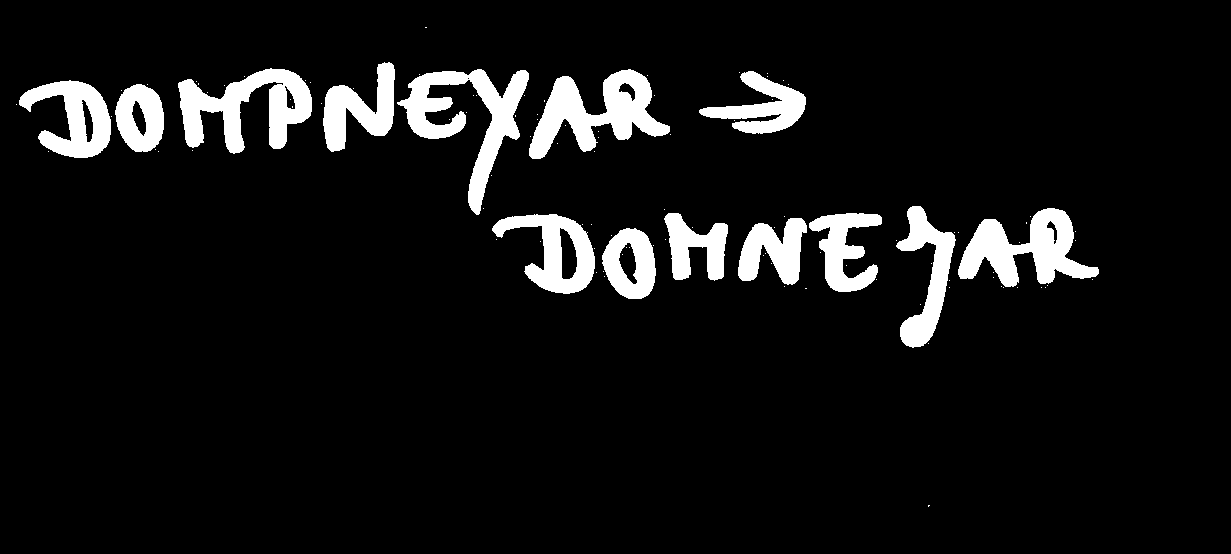 DOMPNEYAR →
DOMNEYAR